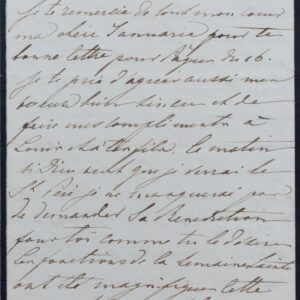 Je te remercie de tout mon coeur
ma chère Januaria pour ta
bonne lettre pour Pâques du 16.
Je te prie d'agréer aussi mes
voeux bien sincères et de
faire mes compliments à
Louis et à tes fils. Ce matin
si Dieu veut que je verrai le
St Père je ne manquerai pas
de demander Sa Bénédiction
pour toi comme tu le désires
Les fonctions de la Semaine Sainte
ont été magnifiques cette